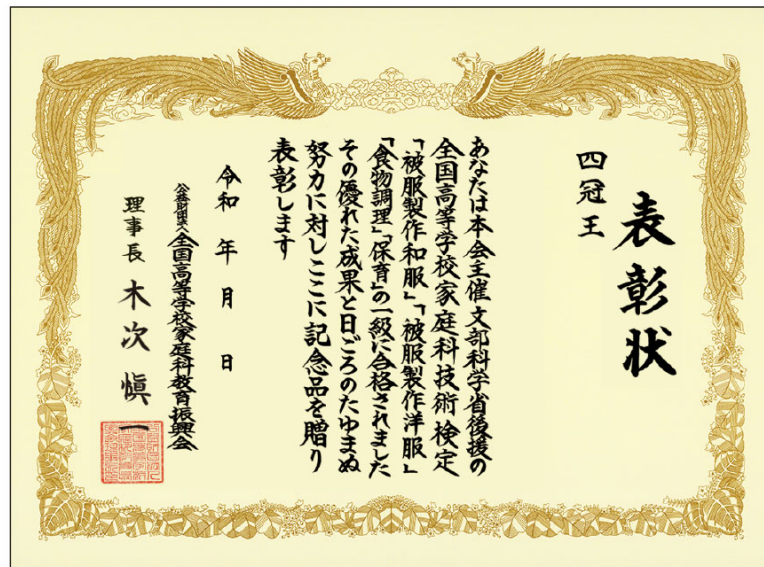 表彰状
四冠王
あなたは本会主催文部科学省後援の
全国高等学校家庭科技術検定
「被服製作和服」「被服製作洋服」
「食物調理」「保育」の一級に合格されました
その優れた成果と日ごろのたゆまぬ
努力に対しここに記念品を贈り
表彰します
令和 年 月 日
公益財団法人全国高等学校家庭科教育振興会
理事長 木次愼一